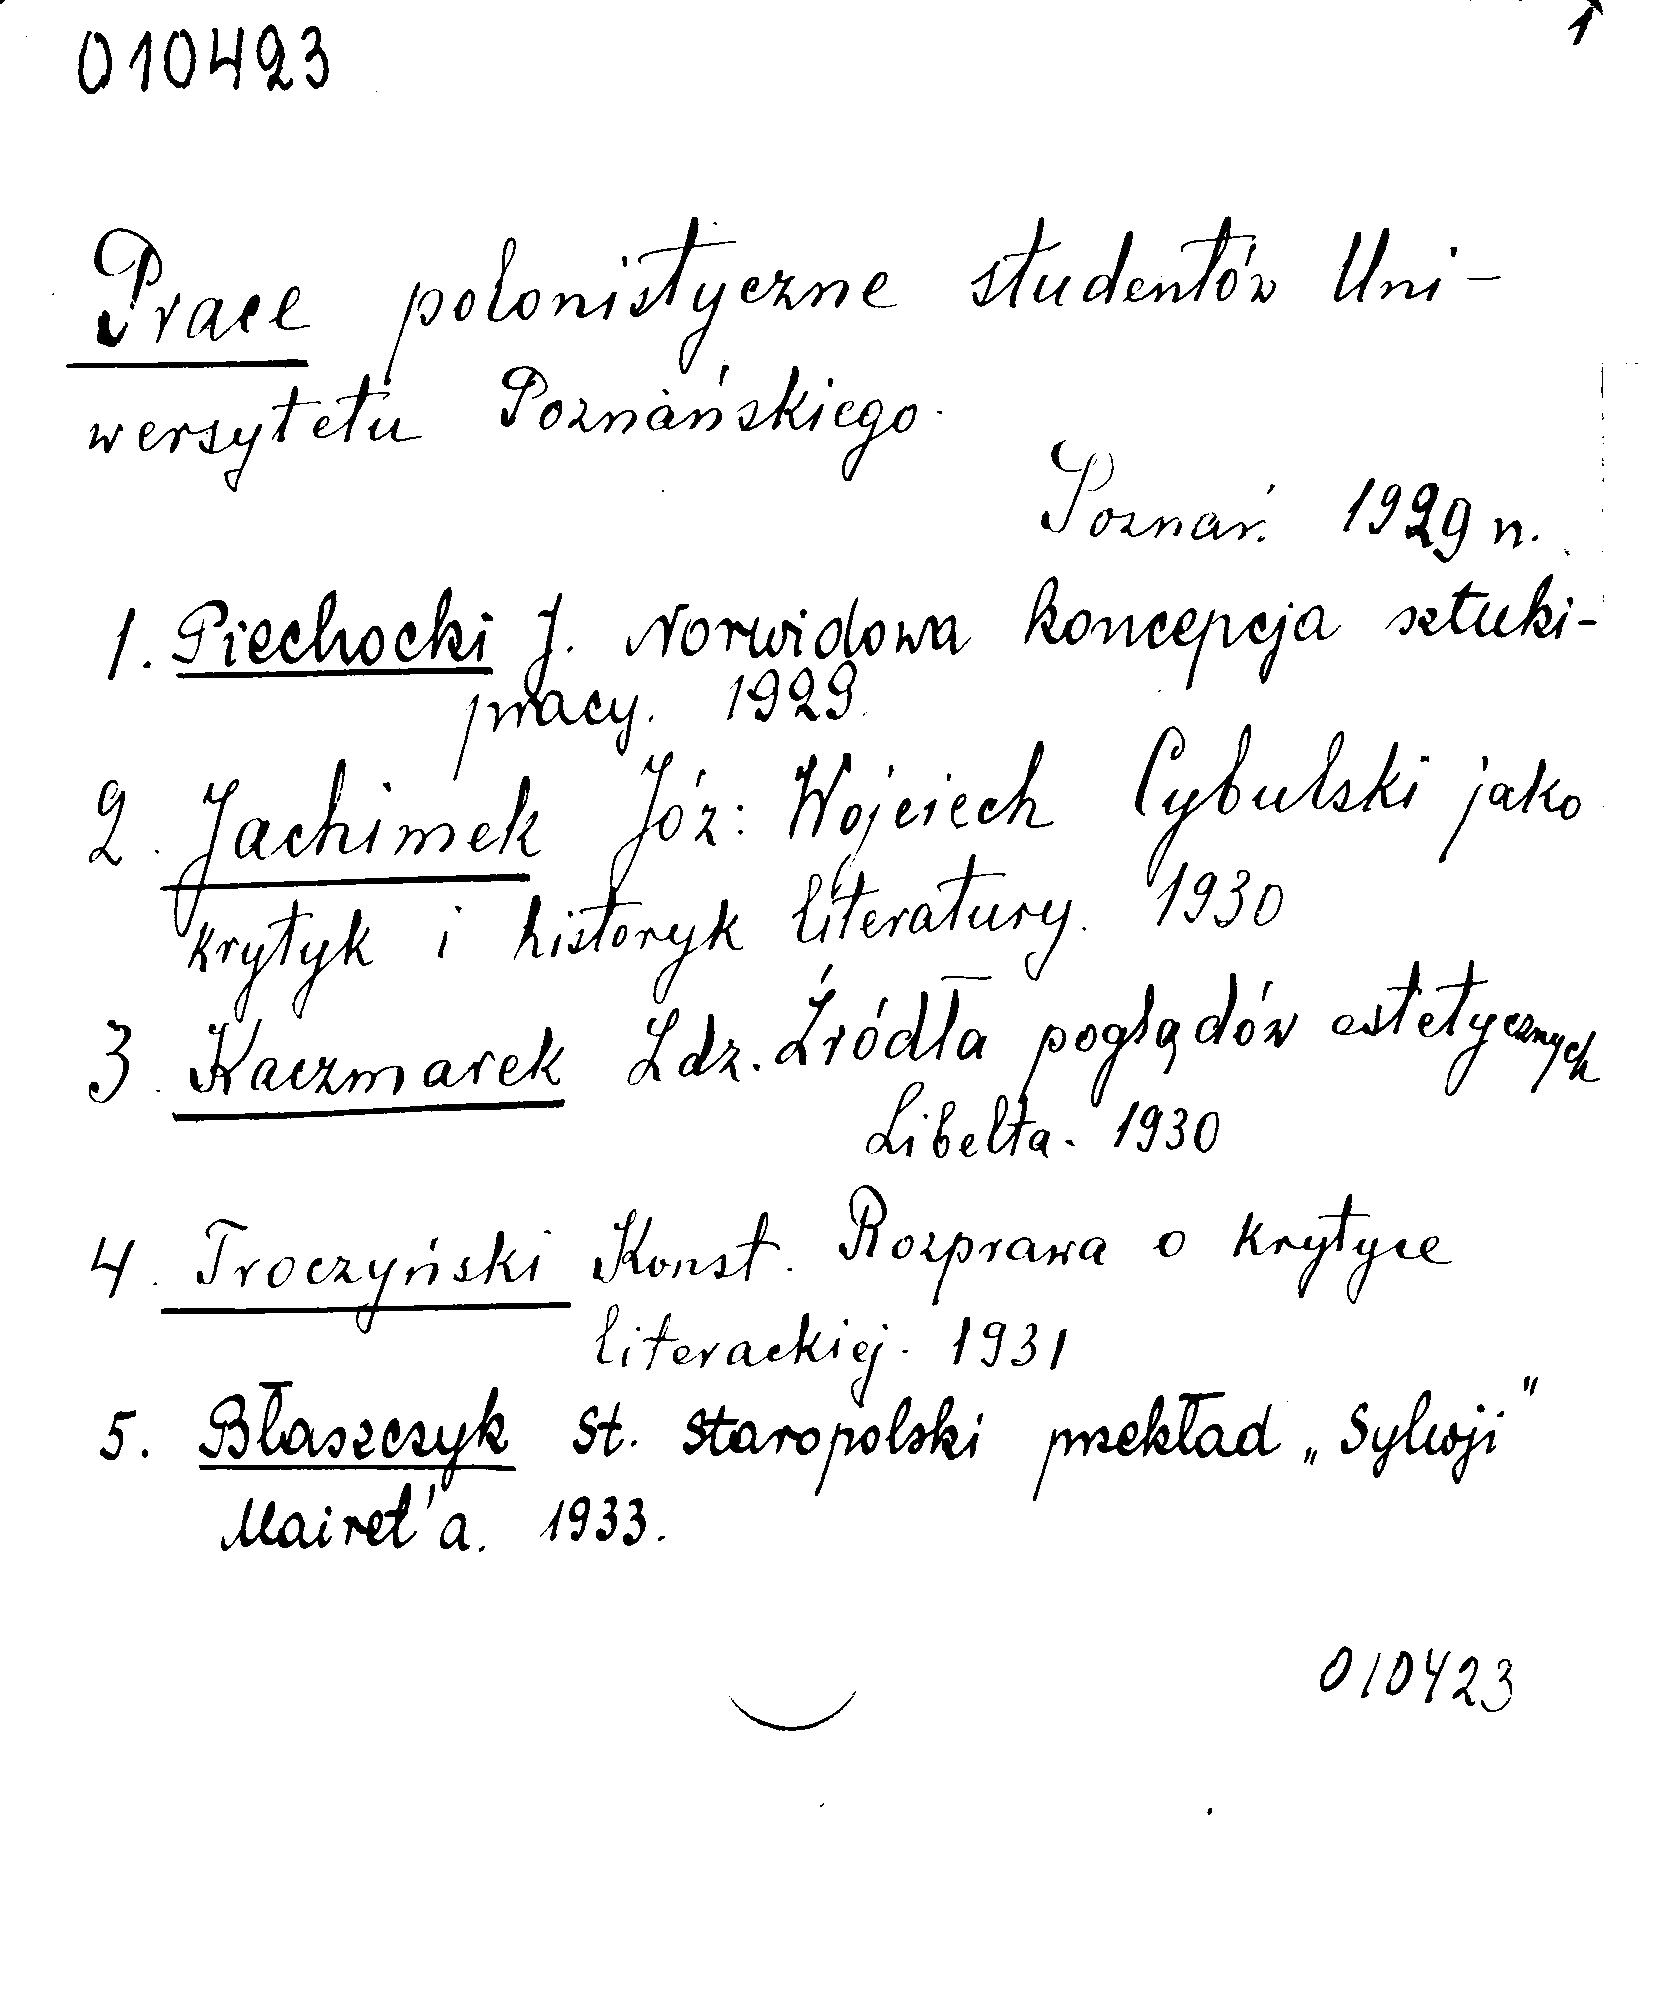 010423
1
Prace polonistyczne studentów Uni-
wersytetu Poznańskiego.
Poznań. 1929 n.
1. Piechocki J. Norwidowa koncepcja sztuki-
pracy. 1929.
2. Jachimek Józ: Wojciech Cybulski jako
krytyk i historyk literatury. 1930
3. Kaczmarek Zdz. Źródła poglądów estetycznych
Libelta. 1930
4. Troczyński Konst. Rozprawa o krytyce
literackiej. 1931
5. Błaszczyk St. Staropolski przekład „Sylwji"
Mairet'a. 1933.
010423